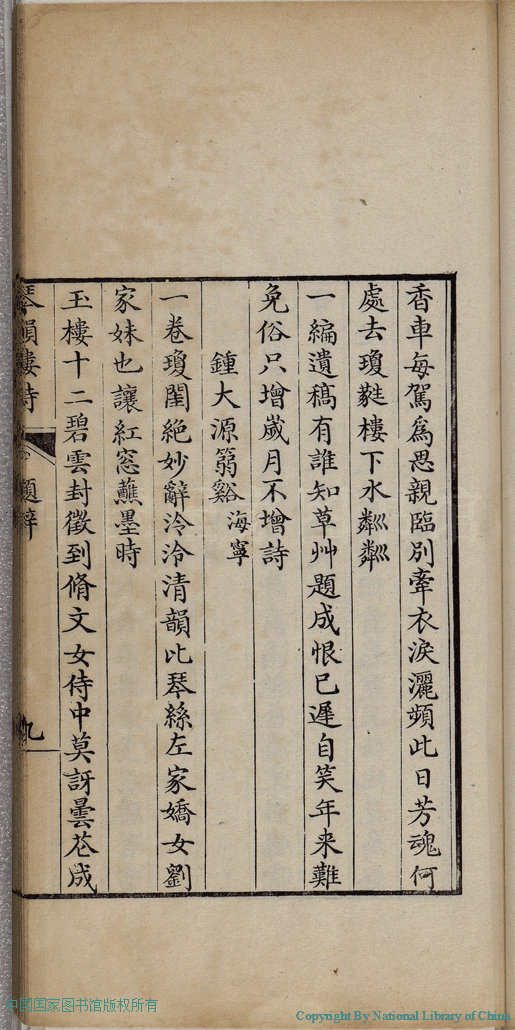 香車每駕爲思親臨別牽衣淚灑頻此日芳魂何
處去瓊㽔樓下水粼粼
一編遺稿有誰知草艸題成恨已遲自笑年来難
免俗只增嵗月不增詩
鍾大源箬谿海寧
一卷瓊閨絶妙辭泠泠清韻比琴絲左家嬌女劉
家妹也讓紅窓蘸墨時
玉樓十二碧雲封徵到脩文女侍中莫訝曇花成
琴韻樓詩 題辭 九
中国国家图书馆版权所有
Copyright By National Library of China